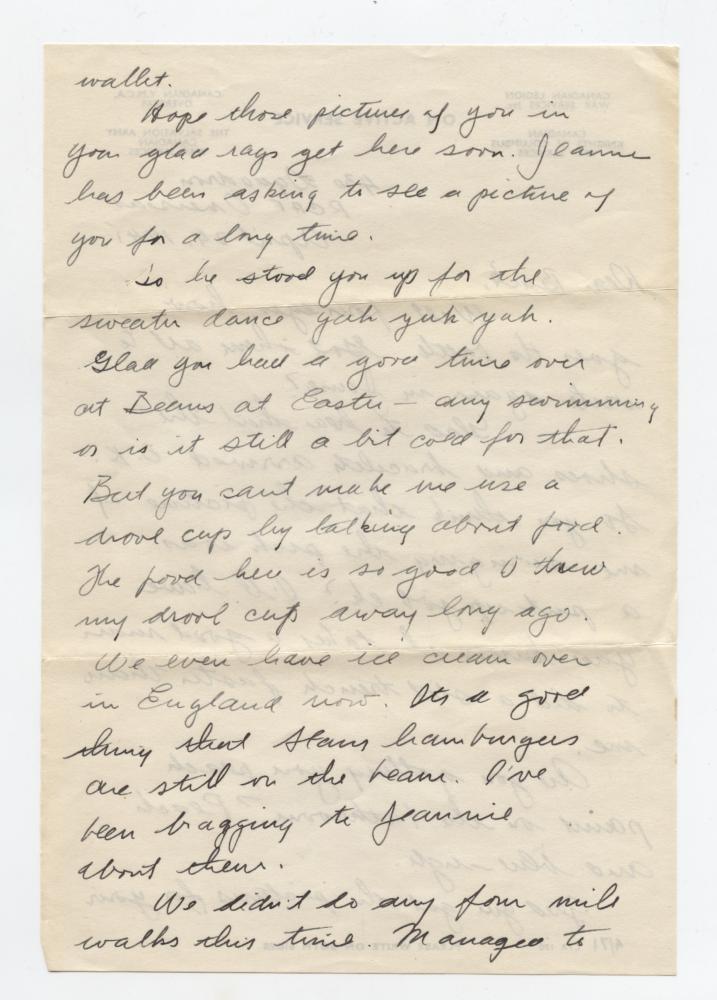 wallet.
Hope those pictures of you in
your glad rags get here soon. Jeannie
has been asking to see a picture of
you for a long time.
So he stood you up for the
sweater dance yuh yuk yah.
Glad you had a good time over
at Beans at Easter – any swimming
or is it still a bit cold for that.
But you cant make me use a
drool cup by talking about food.
The food here is so good I threw
my drool cup away long ago.
We even have ice cream over
in England now. Its a good
thing that Stans hamburgers
are still on the beam. I've
been bragging to Jeannie
about them.
We didn't do any four mile
walks this time. Managed to